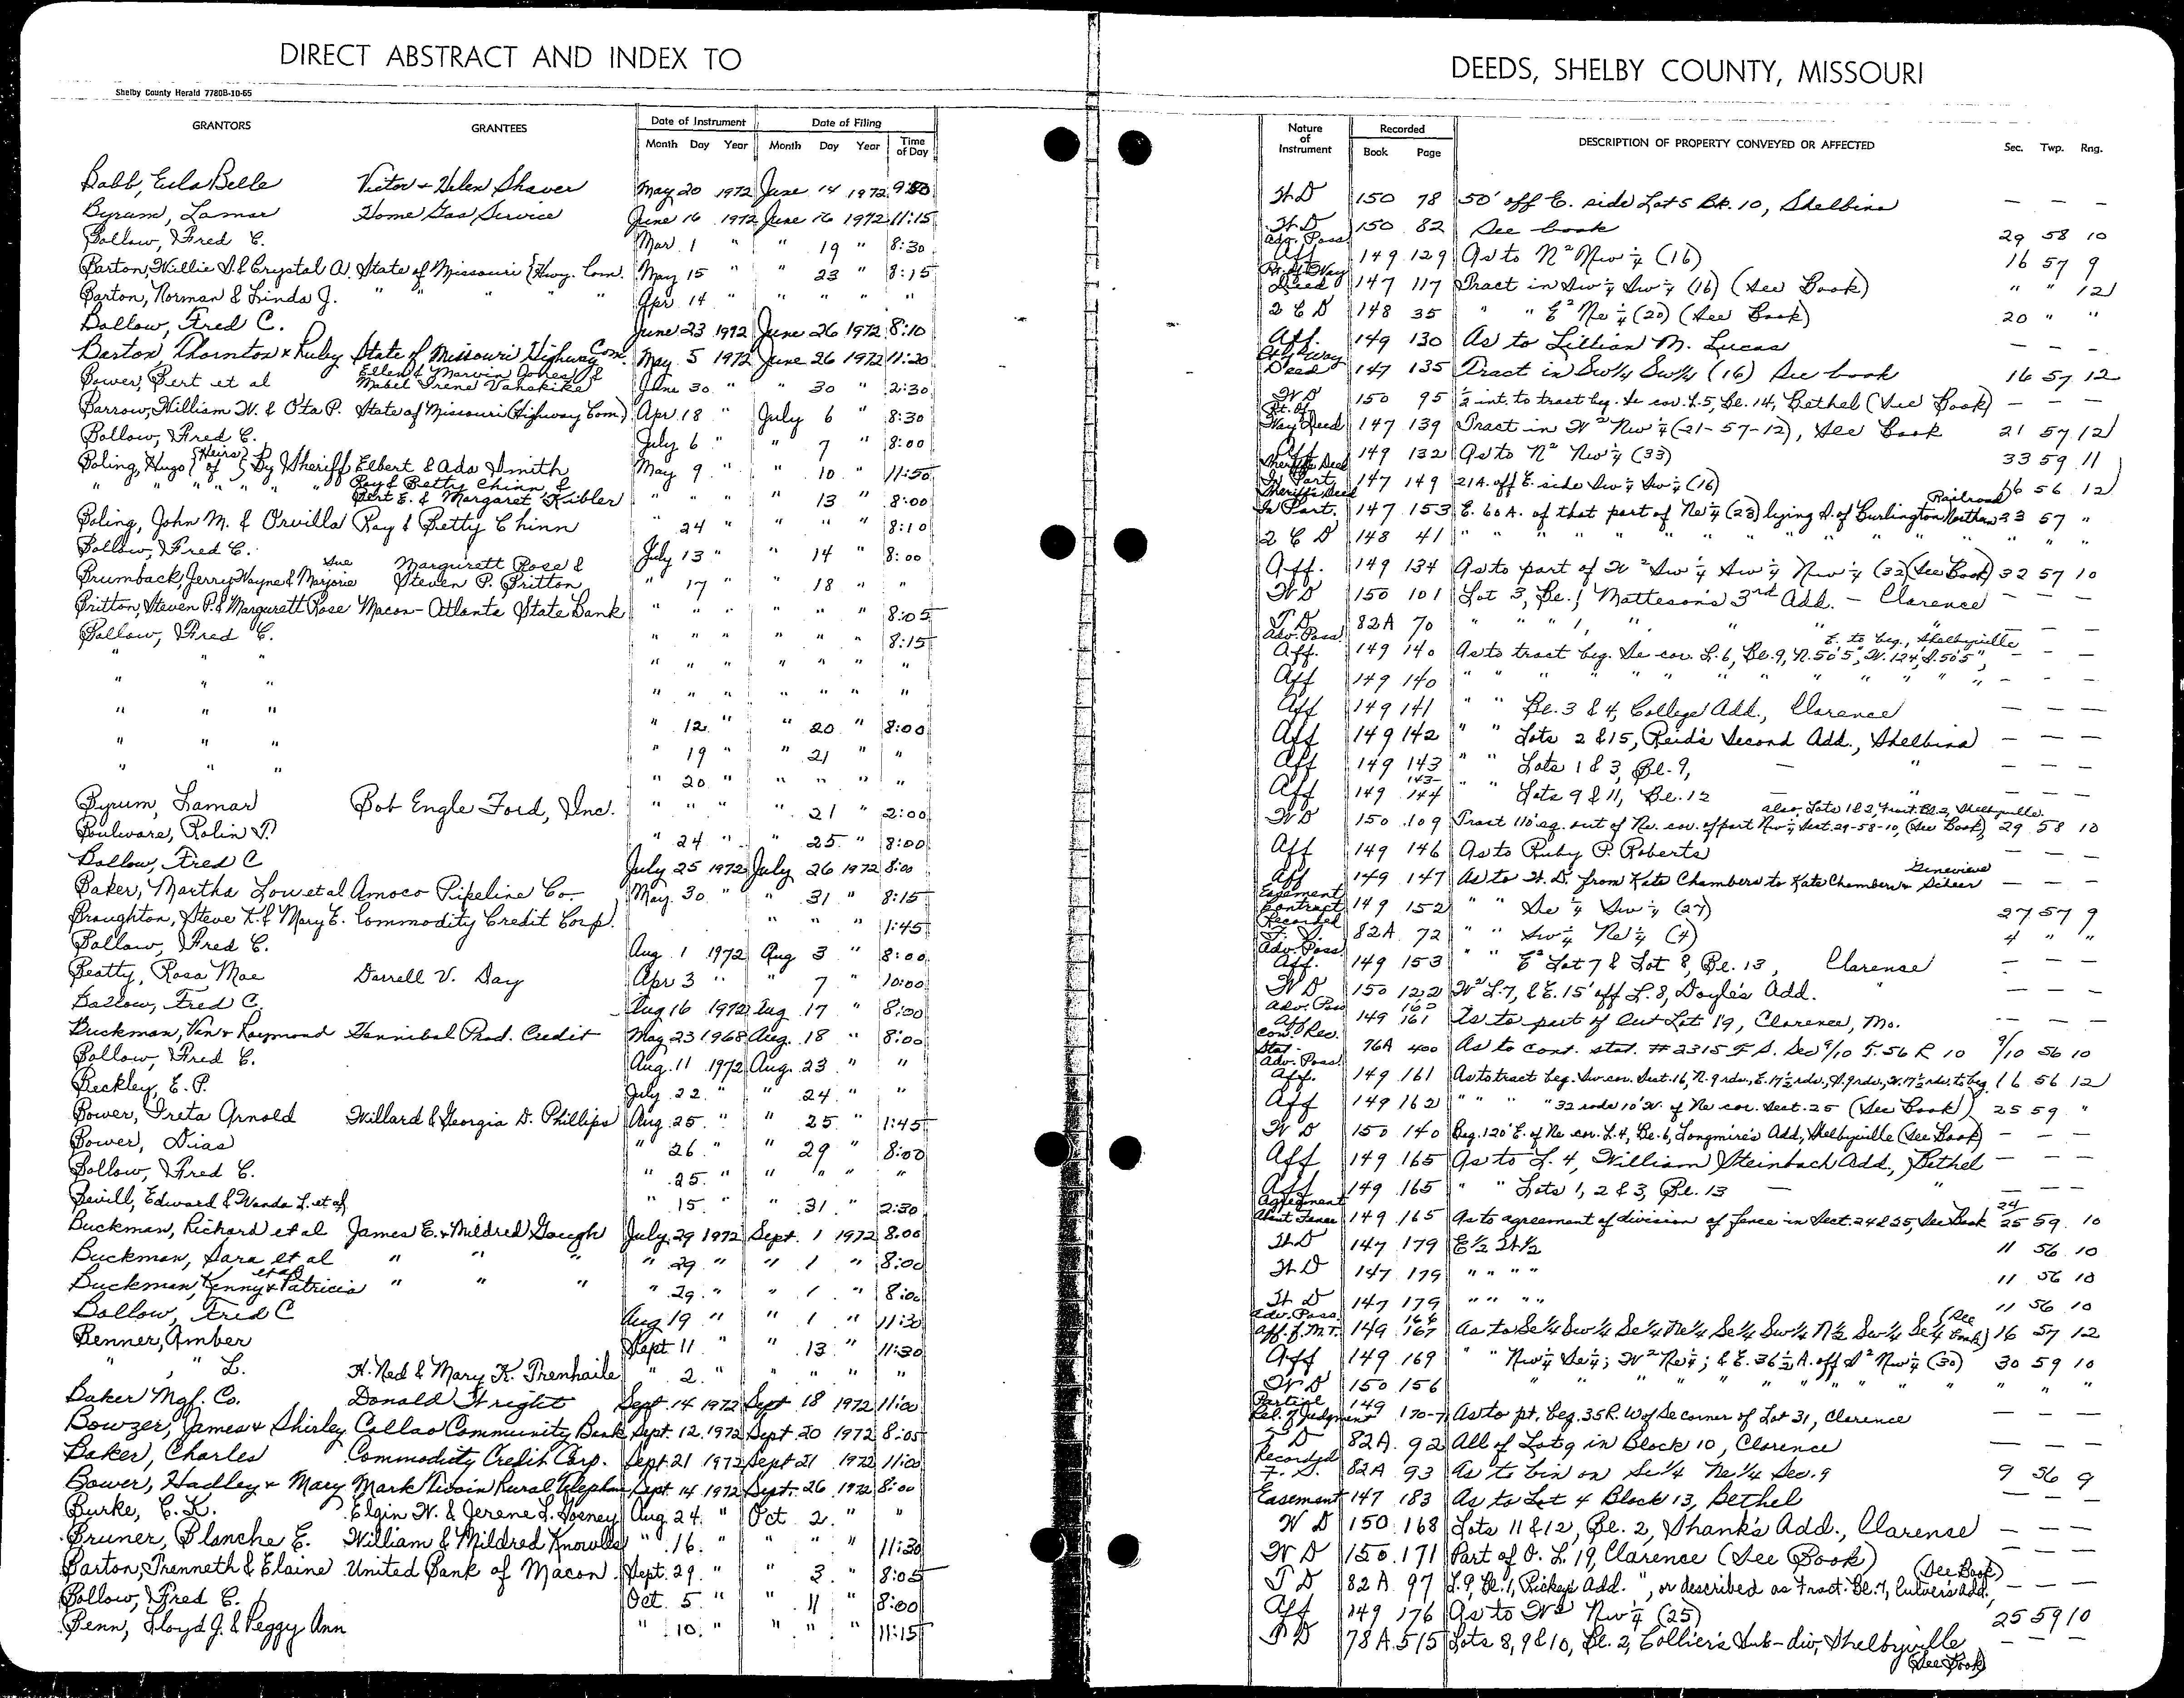 DIRECT ABSTRACT AND INDEX TO DEEDS, SHELBY COUNTY, MISSOURI
Shelby County Herald 7780B-10-65
GRANTORS GRANTEES Date of Instrument Month Day Year Date of Filing Month Day Year Time of Day Nature of Instrument Recorded Book Page DESCRIPTION OF PROPERTY CONVEYED OR AFFECTED Sec. Twp. Rng.
Babb, Eula Belle Victor & Helen Shaver May 20 1972 June 14 1972 W D 150 78 50' off E. side Lot 5 Bk. 10, Shelbina — — —
Byrum, Lamar Home Gas Service June 16 1972 June 16 1972 11:15 W D 150 82 See book 29 58 10
Bollow, Fred C. Mar. 1 " " 19 " 8:30 Adv. Poss. Aff 149 129 As to N² Nw ¼ (16) 16 57 9
Barton, Willie S. & Crystal A. State of Missouri (Hwy. Com. May 15 " " 23 " 8:15 Rt. of Way Deed 147 117 Tract in Sw ¼ Sw ¼ (16) (See Book) " " 12
Barton, Norman & Linda J. " " " " Apr. 14 " " " " " 2 C D 148 35 " " E² Ne ¼ (20) (See Book) 20 " "
Bollow, Fred C. June 23 1972 June 26 1972 8:10 Aff. 149 130 As to Lillian M. Lucas — — —
Barton, Thornton & Ruby State of Missouri Highway Com. May 5 1972 June 26 1972 11:20 Rt of Way Deed 147 135 Tract in Sw¼ Sw¼ (16) See book 16 57 12
Bower, Bert et al Ellen & Marvin Jones & Mabel Irene Vanskike June 30 " " 30 " 2:30 W D 150 95 ½ int. to tract beg. Se cor. L.5, Bl. 14, Bethel (See Book) — — —
Barrow, William W. & Ota P. State of Missouri (Highway Com.) Apr. 18 " July 6 " 8:30 Rt. of Way Deed 147 139 Tract in W² Nw ¼ (21-57-12), See Book 21 57 12
Bollow, Fred C. July 6 " " 7 " 8:00 Aff 149 132 As to N² Nw ¼ (33) 33 59 11
Boling, Hugo {Heirs of} By Sheriff Elbert & Ada Smith May 9 " " 10 " 11:50 Sheriff's Deed In Part. 147 149 21A. off E. side Sw ¼ Sw ¼ (16) 16 56 12
" " " " " " Ray & Betty Chinn & Bert E. & Margaret Kibler " " " " 13 " 8:00 Sheriff's Deed In Part. 147 153 E. 60 A. of that part of Ne ¼ (23) lying S. of Burlington Northern Railroad 23 57 "
Boling, John M. & Orvilla Ray & Betty Chinn " 24 " " " " 8:10 2 C D 148 41 " " " " " " " " " " " "
Bollow, Fred C. July 13 " " 14 " 8:00 Aff. 149 134 As to part of W² Sw ¼ Sw ¼ Nw ¼ (32) (See Book) 32 57 10
Brumback, Jerry Wayne & Marjorie Sue Margurett Rose & Steven P. Britton " 17 " " 18 " " W D 150 101 Lot 3, Bl. 1, Matteson's 3rd Add. — Clarence — — —
Britton, Steven P. & Margurett Rose Macon-Atlanta State Bank " " " " " " 8:05 T D 82A 70 " " " 1, " " " " — — —
Bollow, Fred C. " " " " " " 8:15 Adv. Poss. Aff. 149 140 As to tract beg. Se cor. L.6, Bl. 9, N.50'5", W. 124', S. 50'5", E. to beg., Shelbyville — — —
" " " " " " " " " " Aff 149 140 " " " " " " " " " " " — — —
" " " " " " " " " " Aff 149 141 " " Bl. 3 & 4, College Add., Clarence — — —
" " " " 12 " " 20 " 8:00 Aff 149 142 " " Lots 2 & 15, Reid's Second Add., Shelbina — — —
" " " " 19 " " 21 " " Aff 149 143 " " Lots 1 & 3, Bl. 9, — " — — —
" " " " 20 " " " " " Aff 149 143-144 " " Lots 9 & 11, Bl. 12 — " — — —
Byrum, Lamar Bob Engle Ford, Inc. " " " " 21 " 2:00 W D 150 109 Tract 110' sq. out of Ne. cor. of part Nw ¼ Sect. 29-58-10, (See Book) also, Lots 1 & 2, Fract. Bl. 2, Shelbyville. 29 58 10
Boulware, Rolin T. " 24 " " 25 " 8:00 Aff 149 146 As to Ruby P. Roberts — — —
Bollow, Fred C July 25 1972 July 26 1972 8:00 Aff 149 147 As to W. D. from Kate Chambers to Kate Chambers & Genevieve — — —
Baker, Martha Lou et al Amoco Pipeline Co. May 30 " " 31 " 8:15 Easement Contract 149 152 " " Se ¼ Sw ¼ (27) 27 57 9
Broughton, Steve K. & Mary E. Commodity Credit Corp. " " " 1:45 Recorded F. S. 82A 72 " " Sw ¼ Ne ¼ (4) 4 " "
Bollow, Fred C. Aug 1 1972 Aug 3 " 8:00 Adv. Poss. Aff. 149 153 " " E² Lot 7 & Lot 8, Bl. 13, Clarence — — —
Beatty, Rosa Mae Darrell V. Day Apr 3 " " 7 " 10:00 W D 150 122 W² L.7, & E. 15' off L. 8, Doyle's Add. " — — —
Bollow, Fred C. Aug 16 1972 Aug. 17 " 8:00 Adv. Pos Aff 149 161 As to part of Out Lot 19, Clarence, Mo. — — —
Buckman, Van & Raymond Hannibal Prod. Credit May 23 1968 Aug. 18 " 8:00 Rec. Stat. 76A 400 As to cont. stat. # 2315 F S. Sec 9/10 T. 56 R 10 9/10 56 10
Bollow, Fred C. Aug. 11 1972 Aug. 23 " " Adv. Poss. Aff. 149 161 As to tract beg. Sw cor. Sect. 16, N. 9 rds., E. 17½ rds., S. 9 rds., W. 17½ rds. to beg. 16 56 12
Beckley, E. P. July 22 " " 24 " " Aff 149 162 " " " " 32 rods 10' W. of Ne cor. Sect. 25 (See Book) 25 59 "
Bower, Greta Arnold Willard & Georgia D. Phillips Aug. 25 " " 25 " 1:45 W D 150 140 Beg. 120' E. of Ne cor. L.4, Bl. 6, Longmire's Add, Shelbyville (See Book) — — —
Bower, Dias " 26 " " 29 " 8:00 Aff 149 165 As to L. 4, William Steinbach Add., Bethel — — —
Bollow, Fred C. " 25 " " " " " Aff 149 165 " " Lots 1, 2 & 3, Bl. 13 — " — — —
Bevill, Edward & Wanda L. et al " 15 " " 31 " 2:30 Agreement About Fence 149 165 As to agreement of division of fence in Sect. 24 & 25, See Book 24/25 59 10
Buckman, Richard et al James E. & Mildred Gough July 29 1972 Sept. 1 1972 8:00 W D 147 179 E½ W½ 11 56 10
Buckman, Sara et al " " " " 29 " " 1 " 8:00 W D 147 179 " " " " 11 56 10
Buckman, Kenny & Patricia et al " " " " 29 " " 1 " 8:00 W D 147 179 " " " " 11 56 10
Bollow, Fred C Aug 19 " " 1 " 11:30 Adv. Poss. Aff. f. M.T. 149 166 167 As to Se¼ Sw¼ Se¼ Ne¼ Se¼ Sw¼ N½ Sw¼ Se¼ (See Book) 16 57 12
Benner, Amber Sept 11 " " 13 " 11:30 Aff 149 169 " " Nw¼ Se¼; W² Ne¼; & E. 36½ A. off S² Nw¼ (30) 30 59 10
" " L. H. Ned & Mary K. Trenhaile " 2 " " " " " W D 150 156 " " " " " " " " " " "
Baker Mgf. Co. Donald Wright Sept. 14 1972 Sept 18 1972 11:00 Partial Rel. of Judgment 149 170-71 As to pt. beg. 35 R. W of Se corner of Lot 31, Clarence — — —
Bowzer, James & Shirley Callao Community Bank Sept. 12. 1972 Sept 20 1972 8:05 T D 82A. 92 All of Lot 9 in Block 10, Clarence — — —
Baker, Charles Commodity Credit Corp. Sept 21 1972 Sept 21 1972 11:00 Recorded F. S. 82A 93 As to bin on Se¼ Ne¼ Sec. 9 9 56 9
Bower, Hadley & Mary Mark Twain Rural Telephone Sept. 14 1972 Sept. 26 1972 8:00 Easement 147 183 As to Lot 4 Block 13, Bethel — — —
Burke, C. K. Elgin W. & Jerene L. Aug 24. " Oct 2. " " W D 150 168 Lots 11 & 12, Bl. 2, Shank's Add., Clarence — — —
Bruner, Blanche E. William & Mildred Knowles " 16. " " " " 11:30 W D 150 171 Part of O. L. 19, Clarence (See Book) — — —
Barton, Trenneth & Elaine United Bank of Macon Sept. 29 " " 3. " 8:05 T D 82 A. 97 L. 9, Bl. 1, Rickey's Add. ", or described as Fract. Bl. 7, Culver's Add. (See Book) — — —
Bollow, Fred C. Oct. 5 " " 11 " 8:00 Aff 149 176 As to W² Nw ¼ (25) 25 59 10
Benn, Lloyd J. & Peggy Ann " 10. " " " " 11:15 78 A. 515 Lots 8, 9 & 10, Bl. 2, Collier's Sub-div, Shelbyville (See Book) — — —